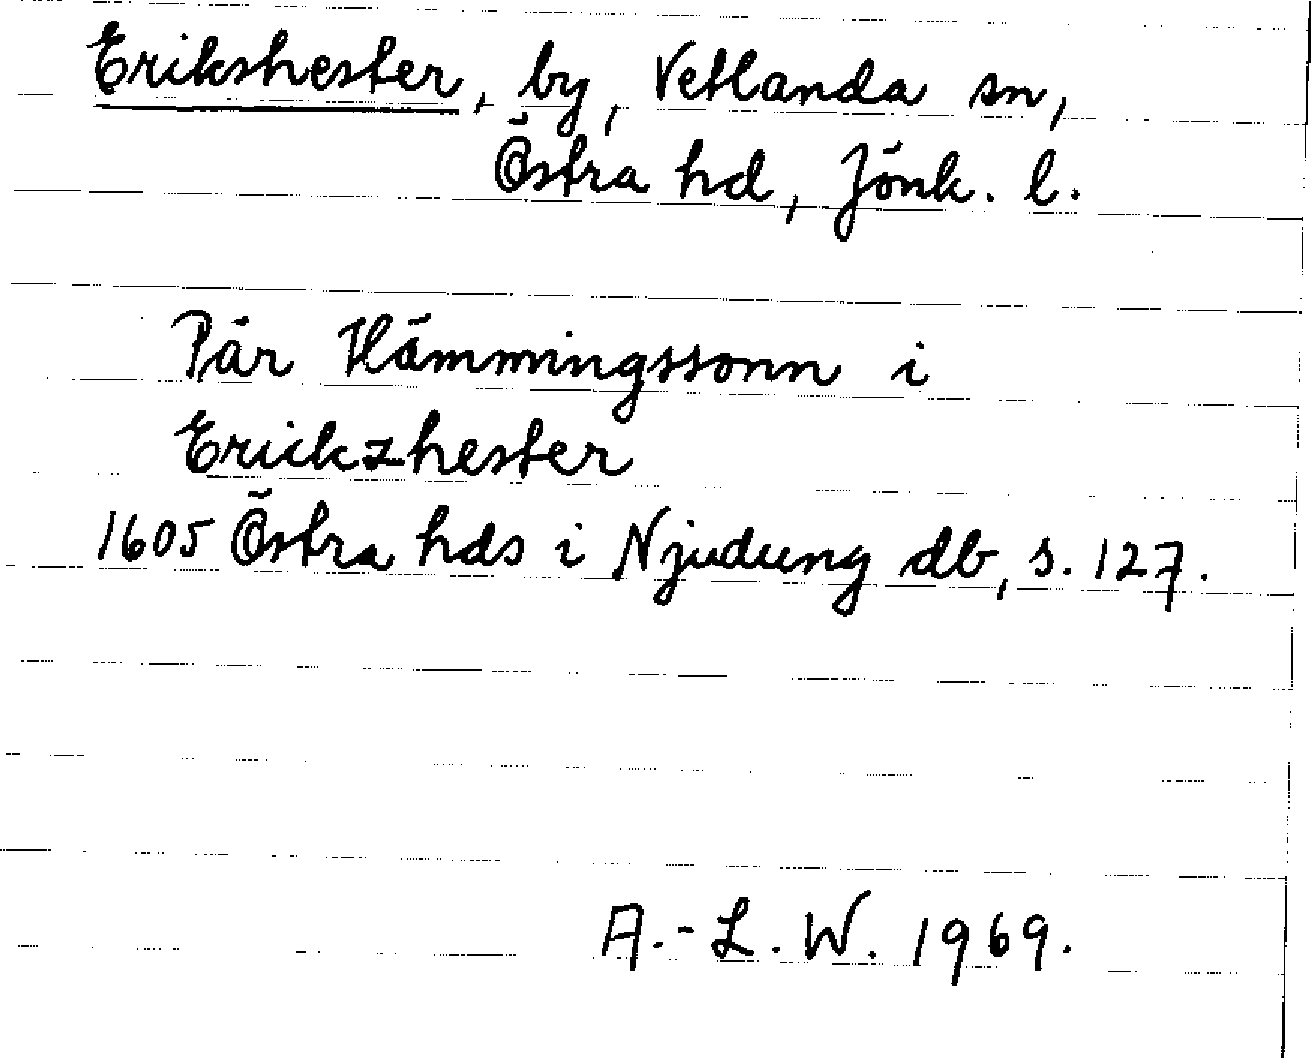 Erikshester, by, Vetlanda sn,
Östra hd, Jönk. l.
Pär Hämmingssonn i
Erickzhester
1605 Östra hds i Njudung db, s. 127.
A.-L. W. 1969.